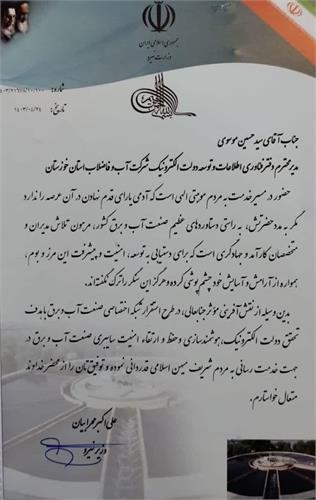 جمهوری اسلامی ایران
وزارت نیرو
شماره:
تاریخ: ۱۴۰۳/۰۴/۲۴
جناب آقای سید حسین موسوی
مدیر محترم دفتر فناوری اطلاعات و توسعه دولت الکترونیک شرکت آب و فاضلاب استان خوزستان
حضور در مسیر خدمت به مردم موهبتی الهی است که آدمی یارای قدم نهادن در آن عرصه را ندارد
مگر به مدد حضرتش، به راستی دستاوردهای عظیم صنعت آب و برق کشور، مرهون تلاش مدیران و
متخصصان کارآمد و جهادگری است که برای دستیابی به توسعه، امنیت و پیشرفت این مرز و بوم،
همواره از آرامش و آسایش خود چشم پوشی کرده و هرگز این سنگر را ترک نگفته‌اند.
بدین وسیله از نقش آفرینی مؤثر جنابعالی، در طرح استقرار شبکه اختصاصی صنعت آب و برق با هدف
تحقق دولت الکترونیک، هوشمندسازی و حفظ و ارتقاء امنیت سایبری صنعت آب و برق در
جهت خدمت رسانی به مردم شریف میهن اسلامی قدردانی نموده و توفیقتان را از محضر خداوند
متعال خواستارم.
علی اکبر محرابیان
وزیر نیرو